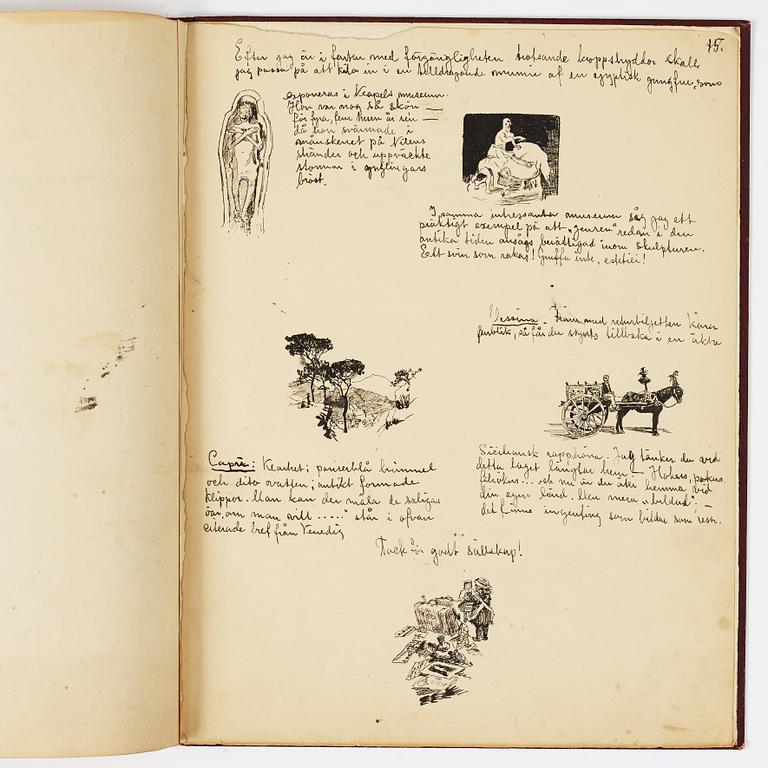 15.
Efter jag är i farten med förgängligheten trotsande kroppshyddor skall
jag passa på att kila in i en tilldragande mumie af en egyptisk jungfru, som
exponeras i Neapels museum.
Hon var nog så skön —
för fyra, fem tusen år sen —
då hon svärmade i
månskenet på Nilens
stränder och uppväckte
stormar i ynglingars
bröst.
I samma intressanta museum såg jag ett
präktigt exempel på att "genren" redan i den
antika tiden ansågs berättigad inom skulpturen.
Ett svin som rakas! Gruffa inte, esteter!
Messina. Fram med returbiljetten kära
publik, så får du skjuts tillbaka i en äkta
Siciliansk rapphöna. Jag tänker du vid
detta laget längtar hem —
och nu är du åter hemma vid
din egen härd. Men mera "bildad"; —
det finns ingenting som bildar som resor.
Capri: Klarhet; pariserblå himmel
och dito vatten; antikt formade
klippor. Man kan der måla de saligas
öar, om man vill ....." står i ofvan
citerade bref från Venedig
Tack för godt sällskap!